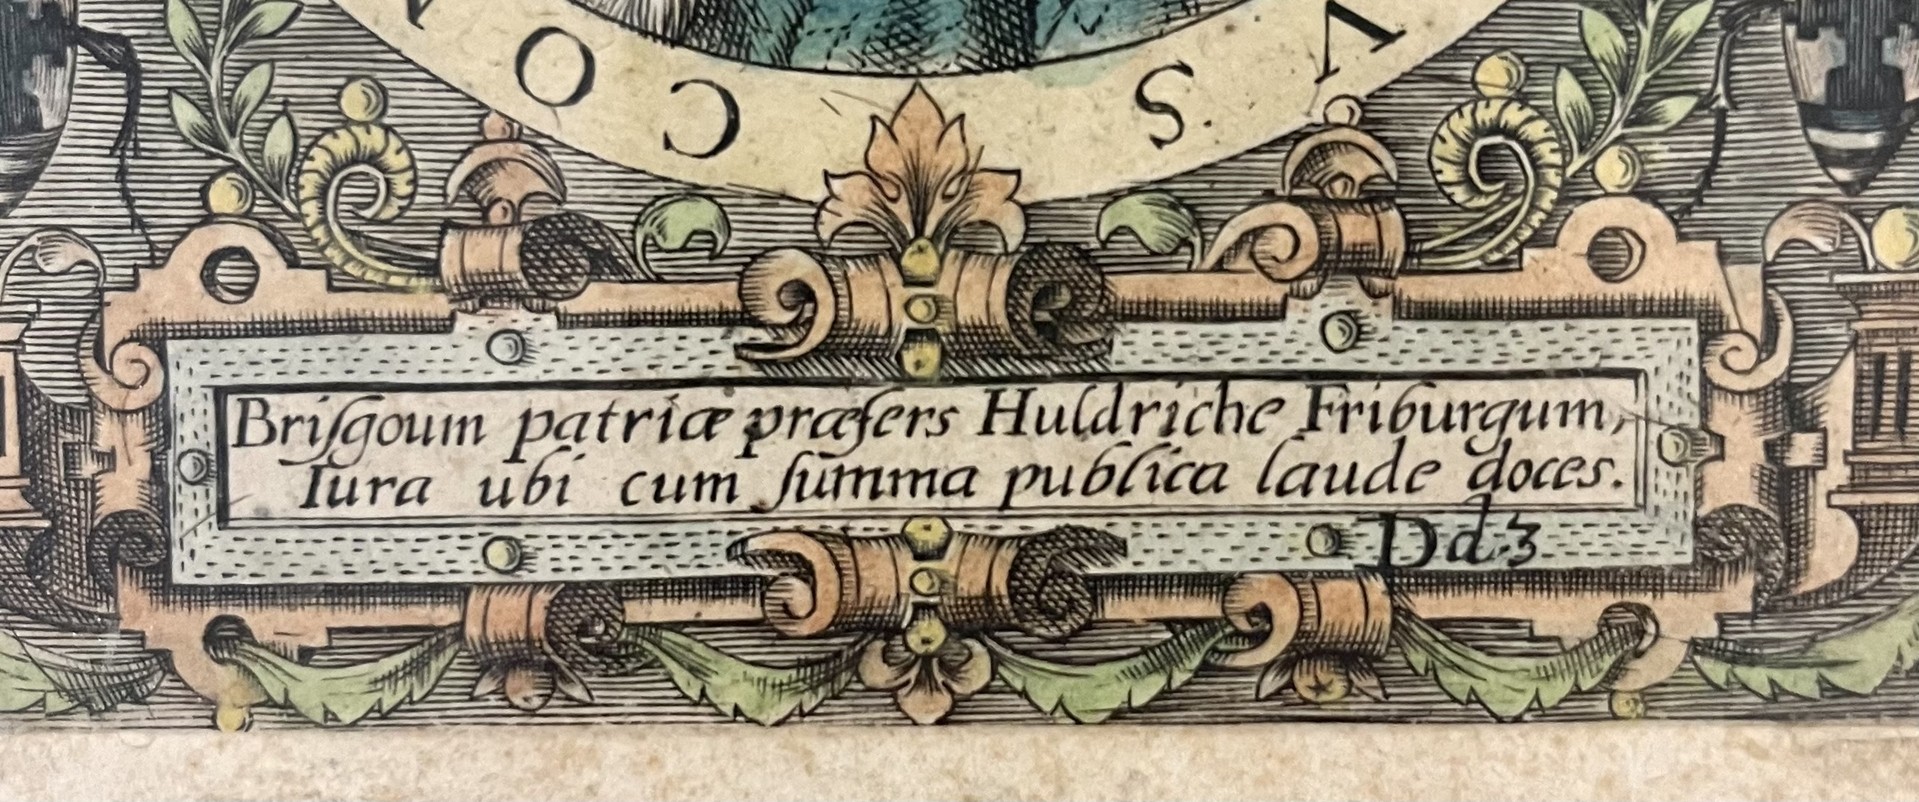 CO
VS.
Briſgoum patriæ præfers Huldriche Friburgum,
Iura ubi cum ſumma publica laude doces.
Dd.3